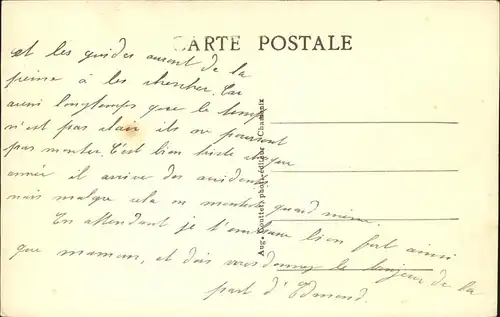 CARTE POSTALE
et les guides auront de la
peine à les chercher. Car
aussi longtemps que le temps
n'est pas clair ils ne pourront
pas monter. C'est bien triste chaque
année il arrive des accidents
mais malgre cela on monte quand même.
En attendant je t'embrasse bien fort ainsi
que maman, et dois vous donner le bonjour de la
part d'Edmond.
Aug. Couttet, phot.-éditeur, Chamonix